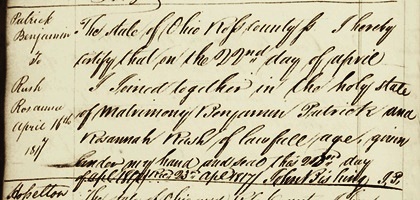 Patrick
Benjamin
To
Rush
Rosanna
April 18th
1817
The state of Ohio Ross county ss. I hereby
certify that on the 22nd day of april
I Joined together in the holy state
of Matrimony Benjamin Patrick and
Rosannah Rush of lawfull age, given
under my hand and seal this day
of apl 1817
The state of Ohio